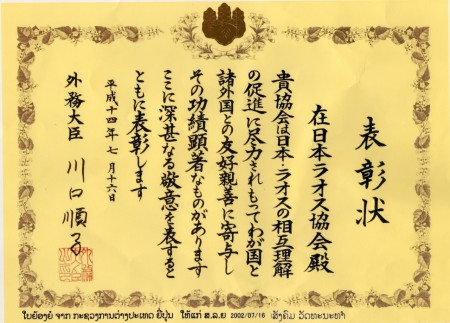 表彰状
在日本ラオス協会殿
貴協会は日本・ラオスの相互理解
の促進に尽力されもってわが国と
諸外国との友好親善に寄与し
その功績顕著なものがあります
ここに深甚なる敬意を表すると
ともに表彰します
平成十四年七月十六日
外務大臣 川口順子
ໃບຍ້ອງຍໍ ຈາກ ກະຊວງການຕ່າງປະເທດ ຍີ່ປຸ່ນ ໃຫ້ແກ່ ສ.ລ.ຍ 2002/07/16 ສັງຄົມ ວັດທະນະທຳ